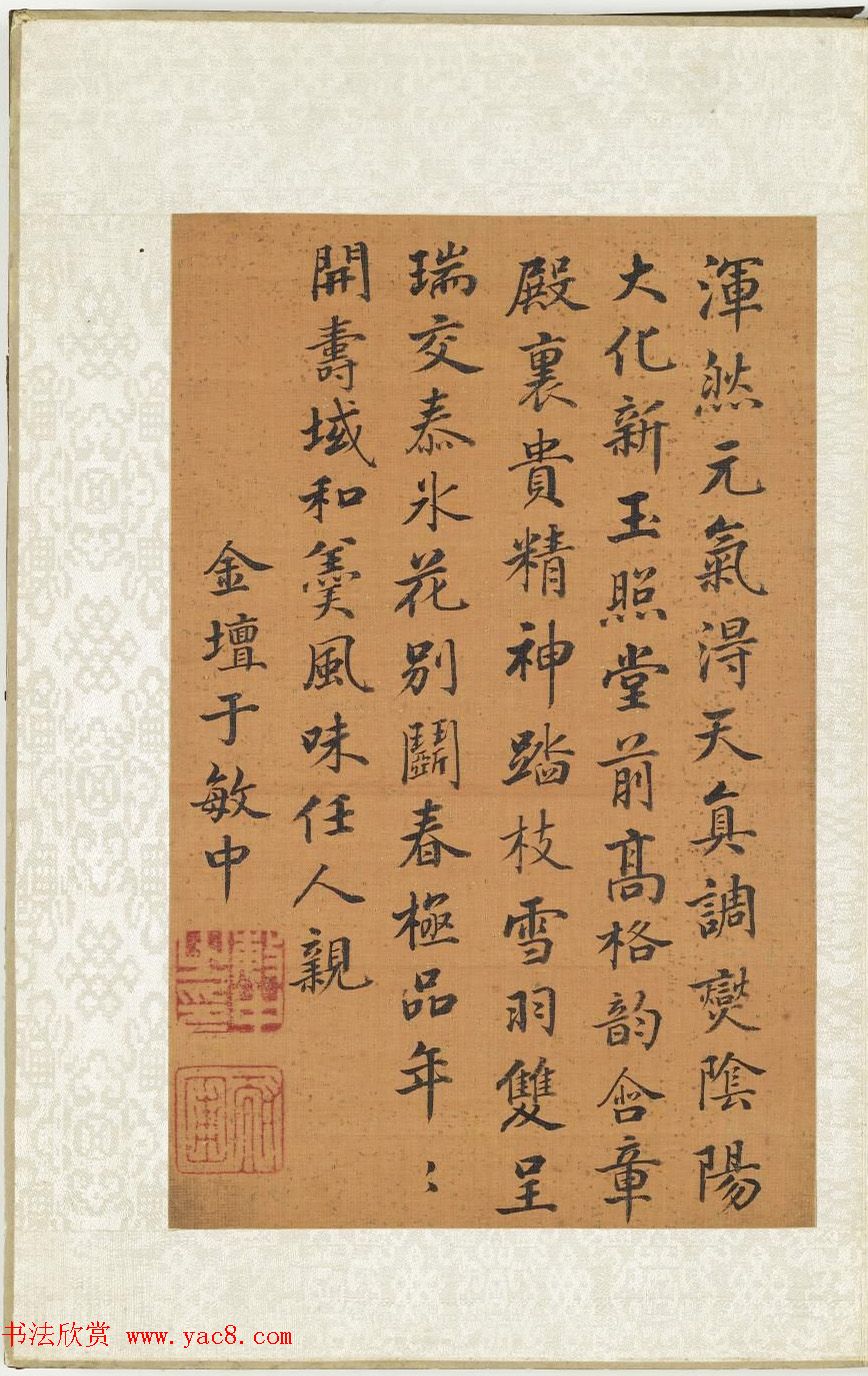 渾然元氣淂天真調爕陰陽
大化新玉照堂前髙格韵含章
殿裏貴精神踏枝雪羽雙呈
瑞交泰氷花别鬭春極品年〻
開壽域和羮風味任人親
金壇于敏中
书法欣赏 www.yac8.com